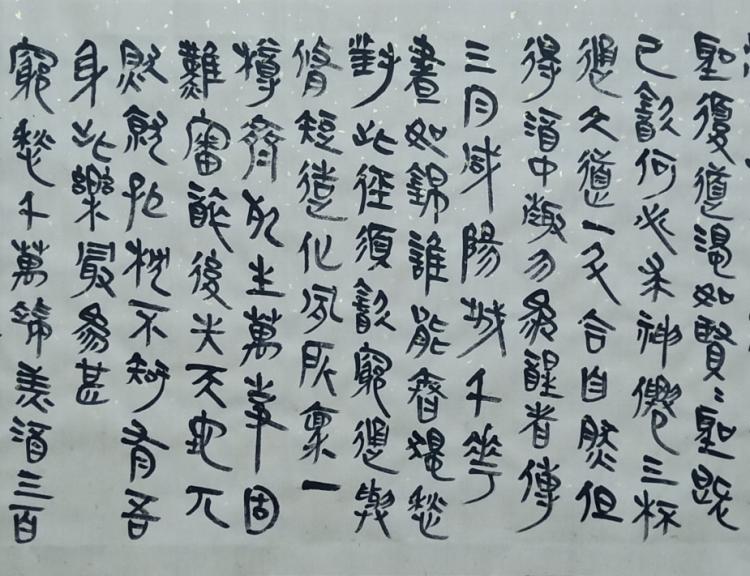 聖復道濁如賢〻聖既
已飲何必求神僊三杯
通大道一斗合自然但
得酒中趣勿為醒者傳
三月咸陽城千華
晝如錦誰能春獨愁
對此徑須飲窮通與
脩短造化夙所稟一
樽齊死生萬事固
難審醉後失天地兀
然就孤枕不知有吾
身此樂最為甚
窮愁千萬端美酒三百